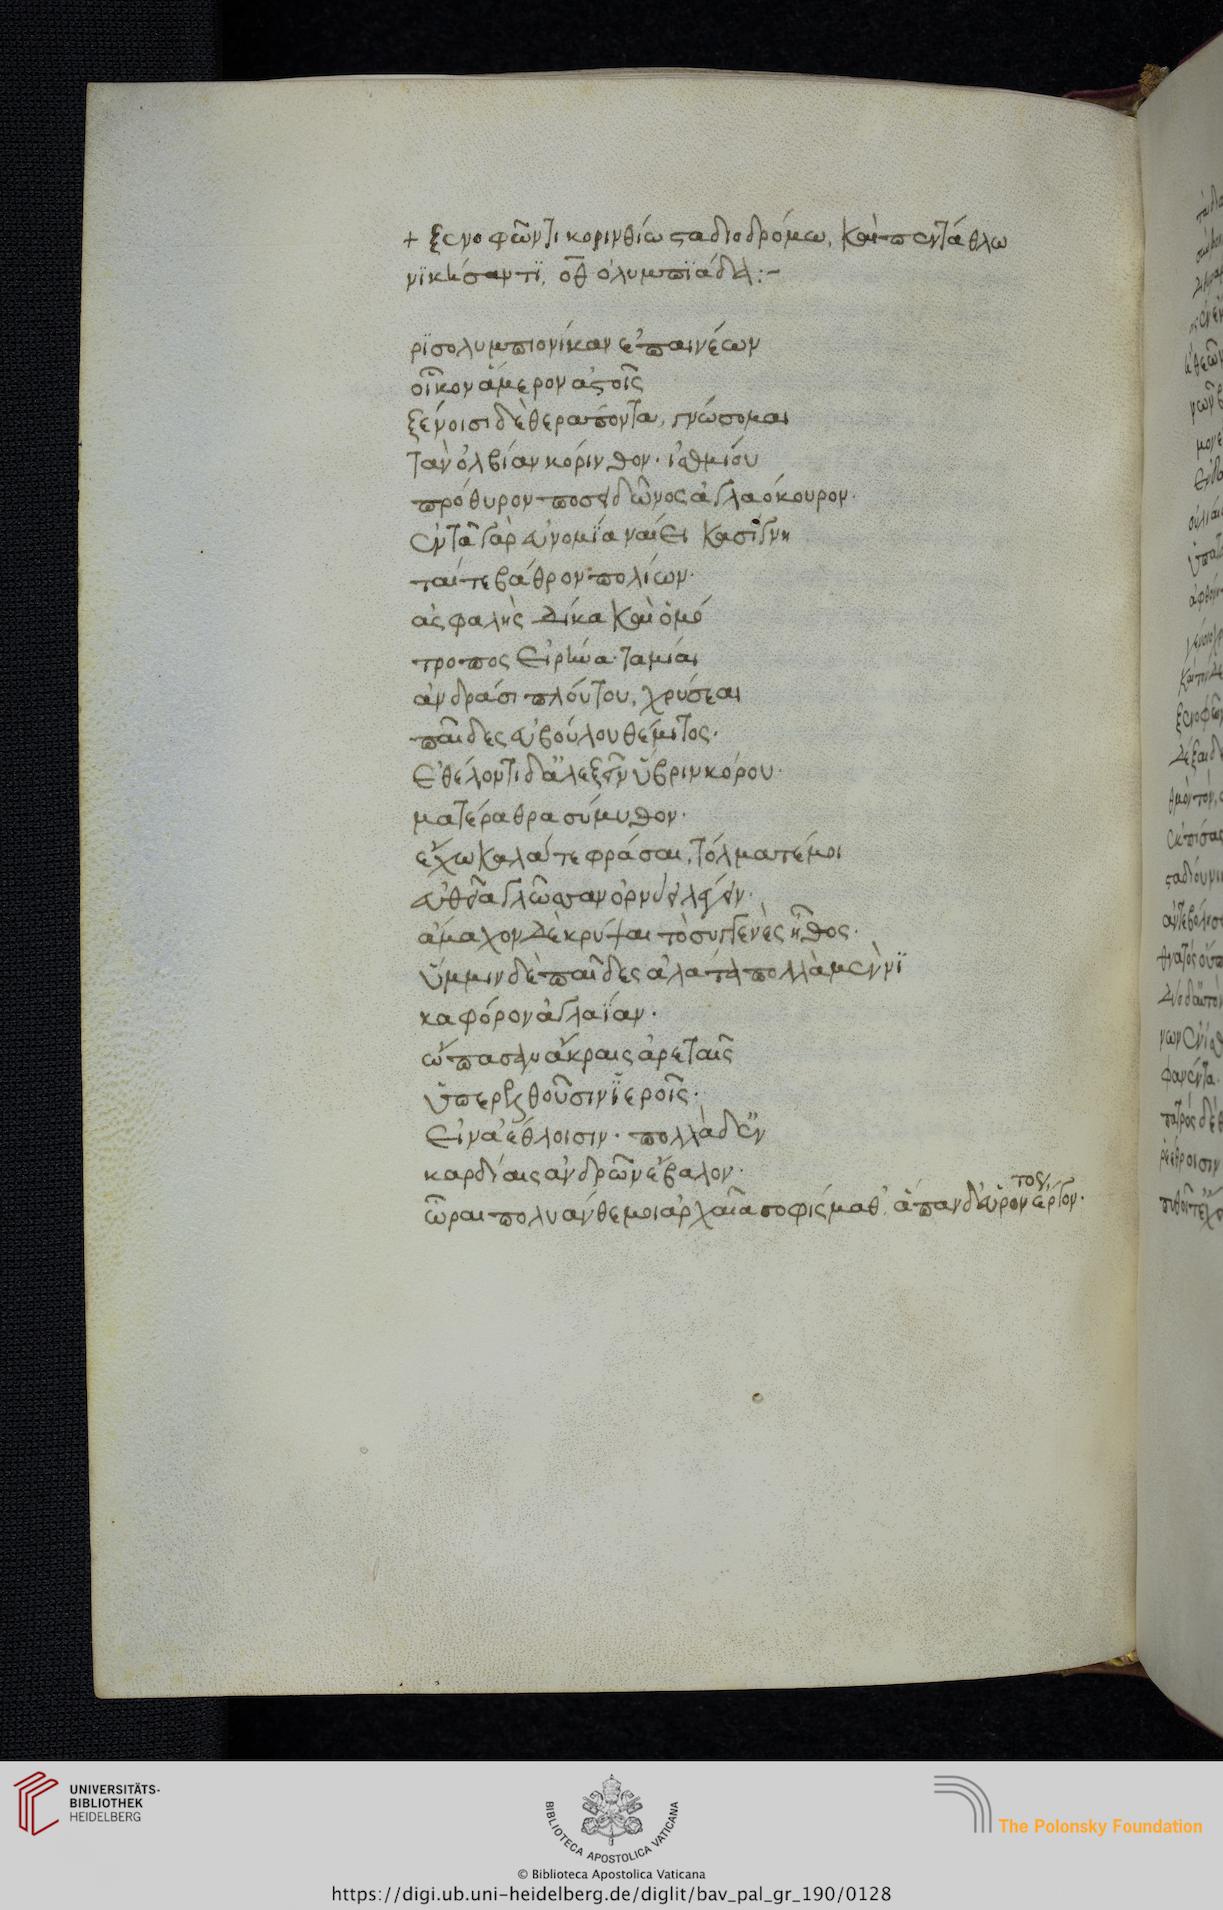 + ξενοφῶντι κορινθίω σταδιοδρόμω, καὶ πεντάθλω
νϊκήσαντϊ, οθ ὀλυμπϊάδα :-
ρϊσολυμπιονίκαν ἐπαινέων
οἶκον ἅμερον ἀστοῖς
ξένοισι δὲ θεράποντα, γνώσομαι
τὰν ὀλβίαν κόρινθον· ἰσθμίου
πρόθυρον ποσειδῶνος ἀγλαόκουρον·
ἐν τᾶ γὰρ εὐνομΐα ναίει κασίγνη
ταί τε βάθρον πολίων·
ἀσφαλὴς δίκα καὶ ὁμό
τροπος εἰρήνα· ταμίαι
ἀνδράσι πλούτου, χρύσεαι
παῖδες εὐβούλου θέμιτος·
ἐθέλοντι δ' ἀλεξεῖν ὕβριν κόρου·
ματέρα θρασύμυθον·
ἔχω καλά τε φράσαι, τόλμα τέ μοι
εὐθεῖα γλῶσσαν ὀρνύει λέγειν·
ἄμαχον δὲ κρύψαι τὸ συγγενὲς ἦθος·
ὔμμιν δὲ παῖδες ἀλάτα πολλὰ μὲν νϊ
καφόρον ἀγλαΐαν·
ὤπασαν ἄκραις ἀρεταῖς
ὑπερελθοῦσιν ϊεροῖς·
εἰν ἀέθλοισιν· πολλὰ δ' ἐν
καρδίαις ἀνδρῶν ἔβαλον·
ὧραι πολυάνθεμοι ἀρχαῖα σοφίσμαθ', ἅπαν δ' εὑρόντος ἔργον·
UNIVERSITÄTS-
BIBLIOTHEK
HEIDELBERG
BIBLIOTECA APOSTOLICA VATICANA
© Biblioteca Apostolica Vaticana
The Polonsky Foundation
https://digi.ub.uni-heidelberg.de/diglit/bav_pal_gr_190/0128